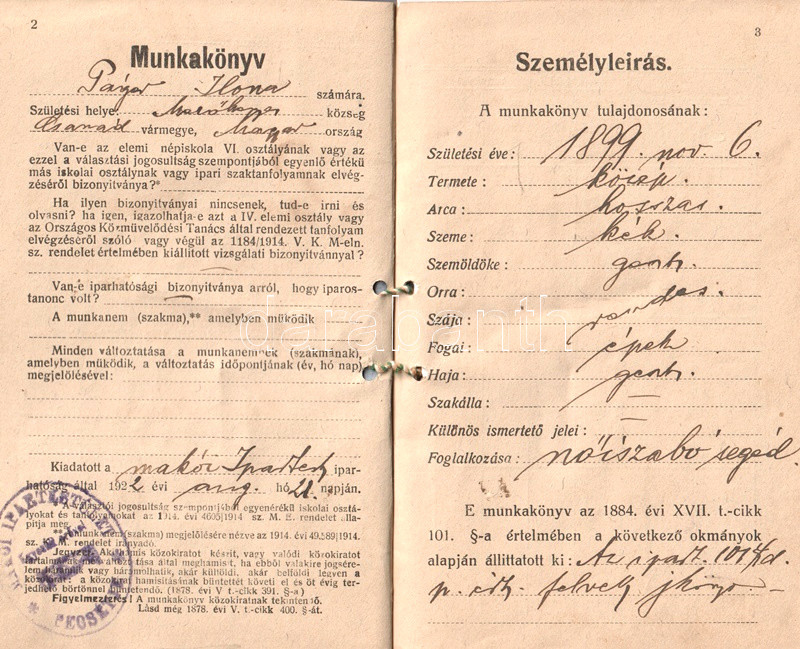 2
Munkakönyv
Páger Ilona számára.
Születési helye: község
Csanád vármegye, Magyar ország
Van-e az elemi népiskola VI. osztályának vagy az
ezzel a választási jogosultság szempontjából egyenlő értékű
más iskolai osztálynak vagy ipari szaktanfolyamnak elvég-
zéséről bizonyitványa?*
Ha ilyen bizonyitványai nincsenek, tud-e irni és
olvasni? ha igen, igazolhatja-e azt a IV. elemi osztály vagy
az Országos Közművelődési Tanács által rendezett tanfolyam
elvégzéséről szóló vagy végül az 1184/1914. V. K. M-eln.
sz. rendelet értelmében kiállitott vizsgálati bizonyitvánnyal?
—
Van-e iparhatósági bizonyitványa arról, hogy iparos-
tanonc volt? —
A munkanem (szakma),** amelyben működik
Minden változtatása a munkanemnek (szakmának),
amelyben működik, a változtatás időpontjának (év, hó nap)
megjelölésével:
Kiadatott a makói Ipartest. ipar-
hatóság által 1922 évi aug. hó 21. napján.
* A választói jogosultság szempontjából egyenértékű iskolai osztá-
lyokat és tanfolyamokat az 1914. évi 4605/1914 sz. M. E. rendelet álla-
pitja meg.
** A munkanem (szakma) megjelölésére nézve az 1914. évi 49.589/1914.
sz. K. M. rendelet irányadó.
Jegyzet. Aki hamis közokiratot készit, vagy valódi közokiratot
tartalmának megváltoztatása által meghamisit, ha ebből valakire jogsére-
lem háramlik vagy háramolhatik, akár külföldi, akár belföldi legyen a
közokirat: a közokirathamisitásnak büntettét követi el és öt évig ter-
jedhető börtönnel büntetendő. (1878. évi V. t.-cikk 391. §-a)
Figyelmeztetés! A munkakönyv közokiratnak tekintendő.
Lásd még 1878. évi V. t.-cikk 400. §-át.
3
Személyleirás.
A munkakönyv tulajdonosának:
Születési éve: 1899. nov. 6.
Termete: közép.
Arca: hosszas.
Szeme: kék.
Szemöldöke: geszt.
Orra: rendes.
Szája:
Fogai: épek
Haja: geszt.
Szakálla: —
Különös ismertető jelei: —
Foglalkozása: nőiszabó segéd.
E munkakönyv az 1884. évi XVII. t.-cikk
101. §-a értelmében a következő okmányok
alapján állittatott ki: Az ipart.
felvett
darabanth